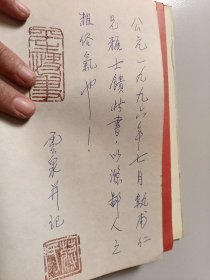 公元一九九六年七月執甫仁
兄雅士饋此書，以滌鄙人之
粗俗氣也！
雲泉并记